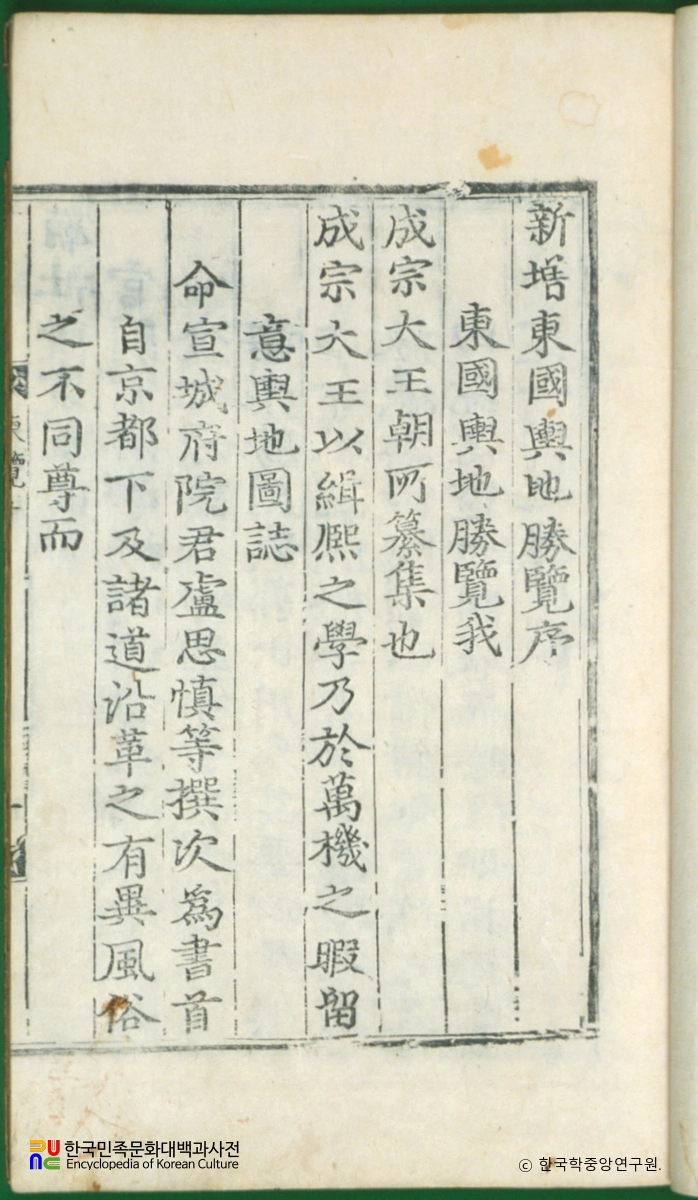 新增東國輿地勝覽序
東國輿地勝覽我
成宗大王朝所纂集也
成宗大王以緝熙之學乃於萬機之暇留
意輿地圖誌
命宣城府院君盧思慎等撰次為書首
自京都下及諸道沿革之有異風俗
之不同尊而
한국민족문화대백과사전
Encyclopedia of Korean Culture
ⓒ 한국학중앙연구원.